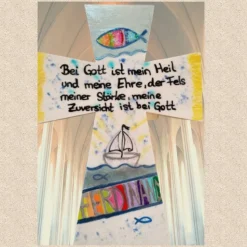 Bei Gott ist mein Heil
und meine Ehre, der Fels
meiner Stärke, meine
Zuversicht ist bei Gott